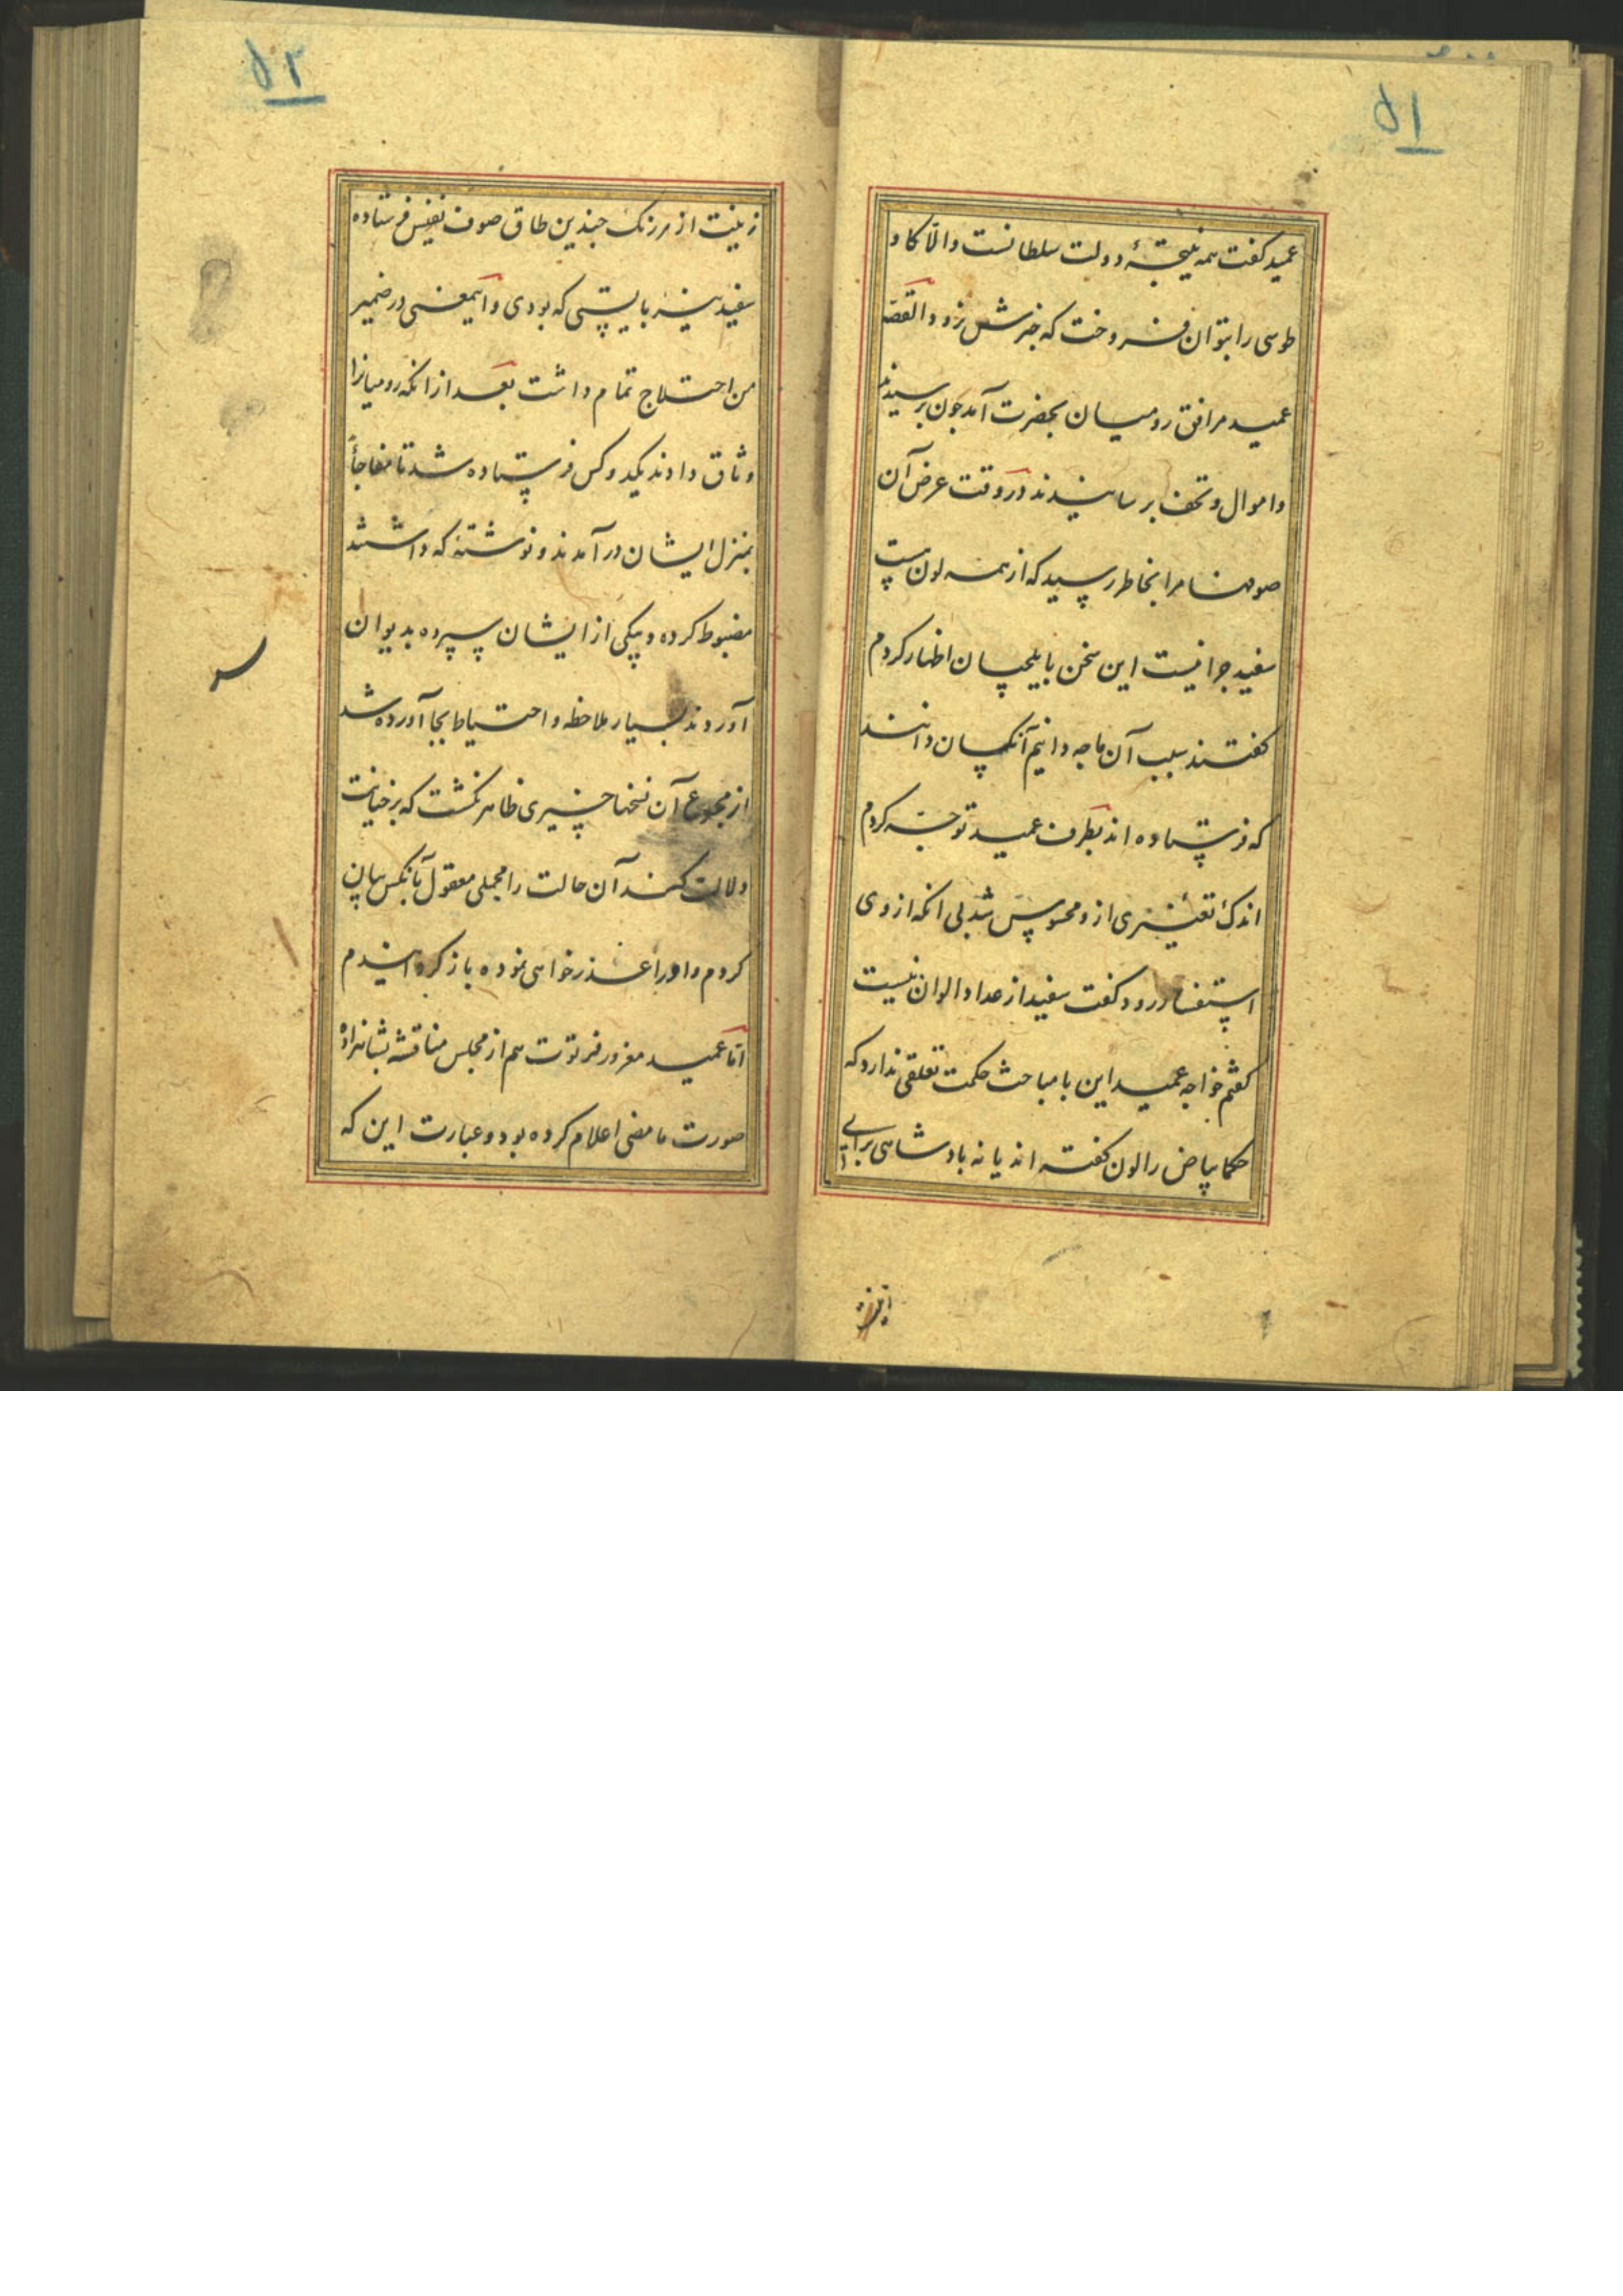 ۵۱
عمید گفت همه نتیجهٔ دولت سلطانست والّا کاو
طوسی را بتوان فروخت که خبرش زود والقصّه
عمید مرافق رومیان بحضرت آمد چون برسیدند
و اموال و تحف برسانیدند در وقت عرض آن
صوفها مرا بخاطر رسید که از همه لون هست
سفید چرا نیست این سخن با یلچیان اظهار کردم
گفتند سبب آن ما چه دانیم آنکسان دانند
که فرستاده اند بطرف عمید توجّه کردم
اندک تغیّری ازو محسوس شد بی آنکه از وی
استفسار رود گفت سفید از عداد الوان نیست
گفتم خواجه عمید این با مباحث حکمت تعلقی ندارد که
حکما بیاض را لون نگفته اند یا نه پادشاهی برای
۵۲
زینت از هر رنگ چندین طاق صوف نفیس فرستاده
سفید نیز بایستی که بودی و اینمعنی در ضمیر
من اختلاج تمام داشت بعد از انکه رومیانرا
وثاق دادند یکدو کس فرستاده شد تا مفاجأ
بمنزل ایشان در آمدند و نوشتهٔ که داشتند
مضبوط کرده و بیکی از ایشان سپرده بدیوان
آوردند بسیار ملاحظه و احتیاط بجا آورده شد
از مجموع آن نسخها چیزی ظاهر نگشت که بر خیانت
دلالت کند آن حالت را مجملی معقول بآنکس بیان
کردم و او را عذر خواهی نموده باز گردانیدم
امّا عمید مغرور فرتوت هم از مجلس مناقشه بشاهزاده
صورت ما مضی اعلام کرده بود و عبارت این که